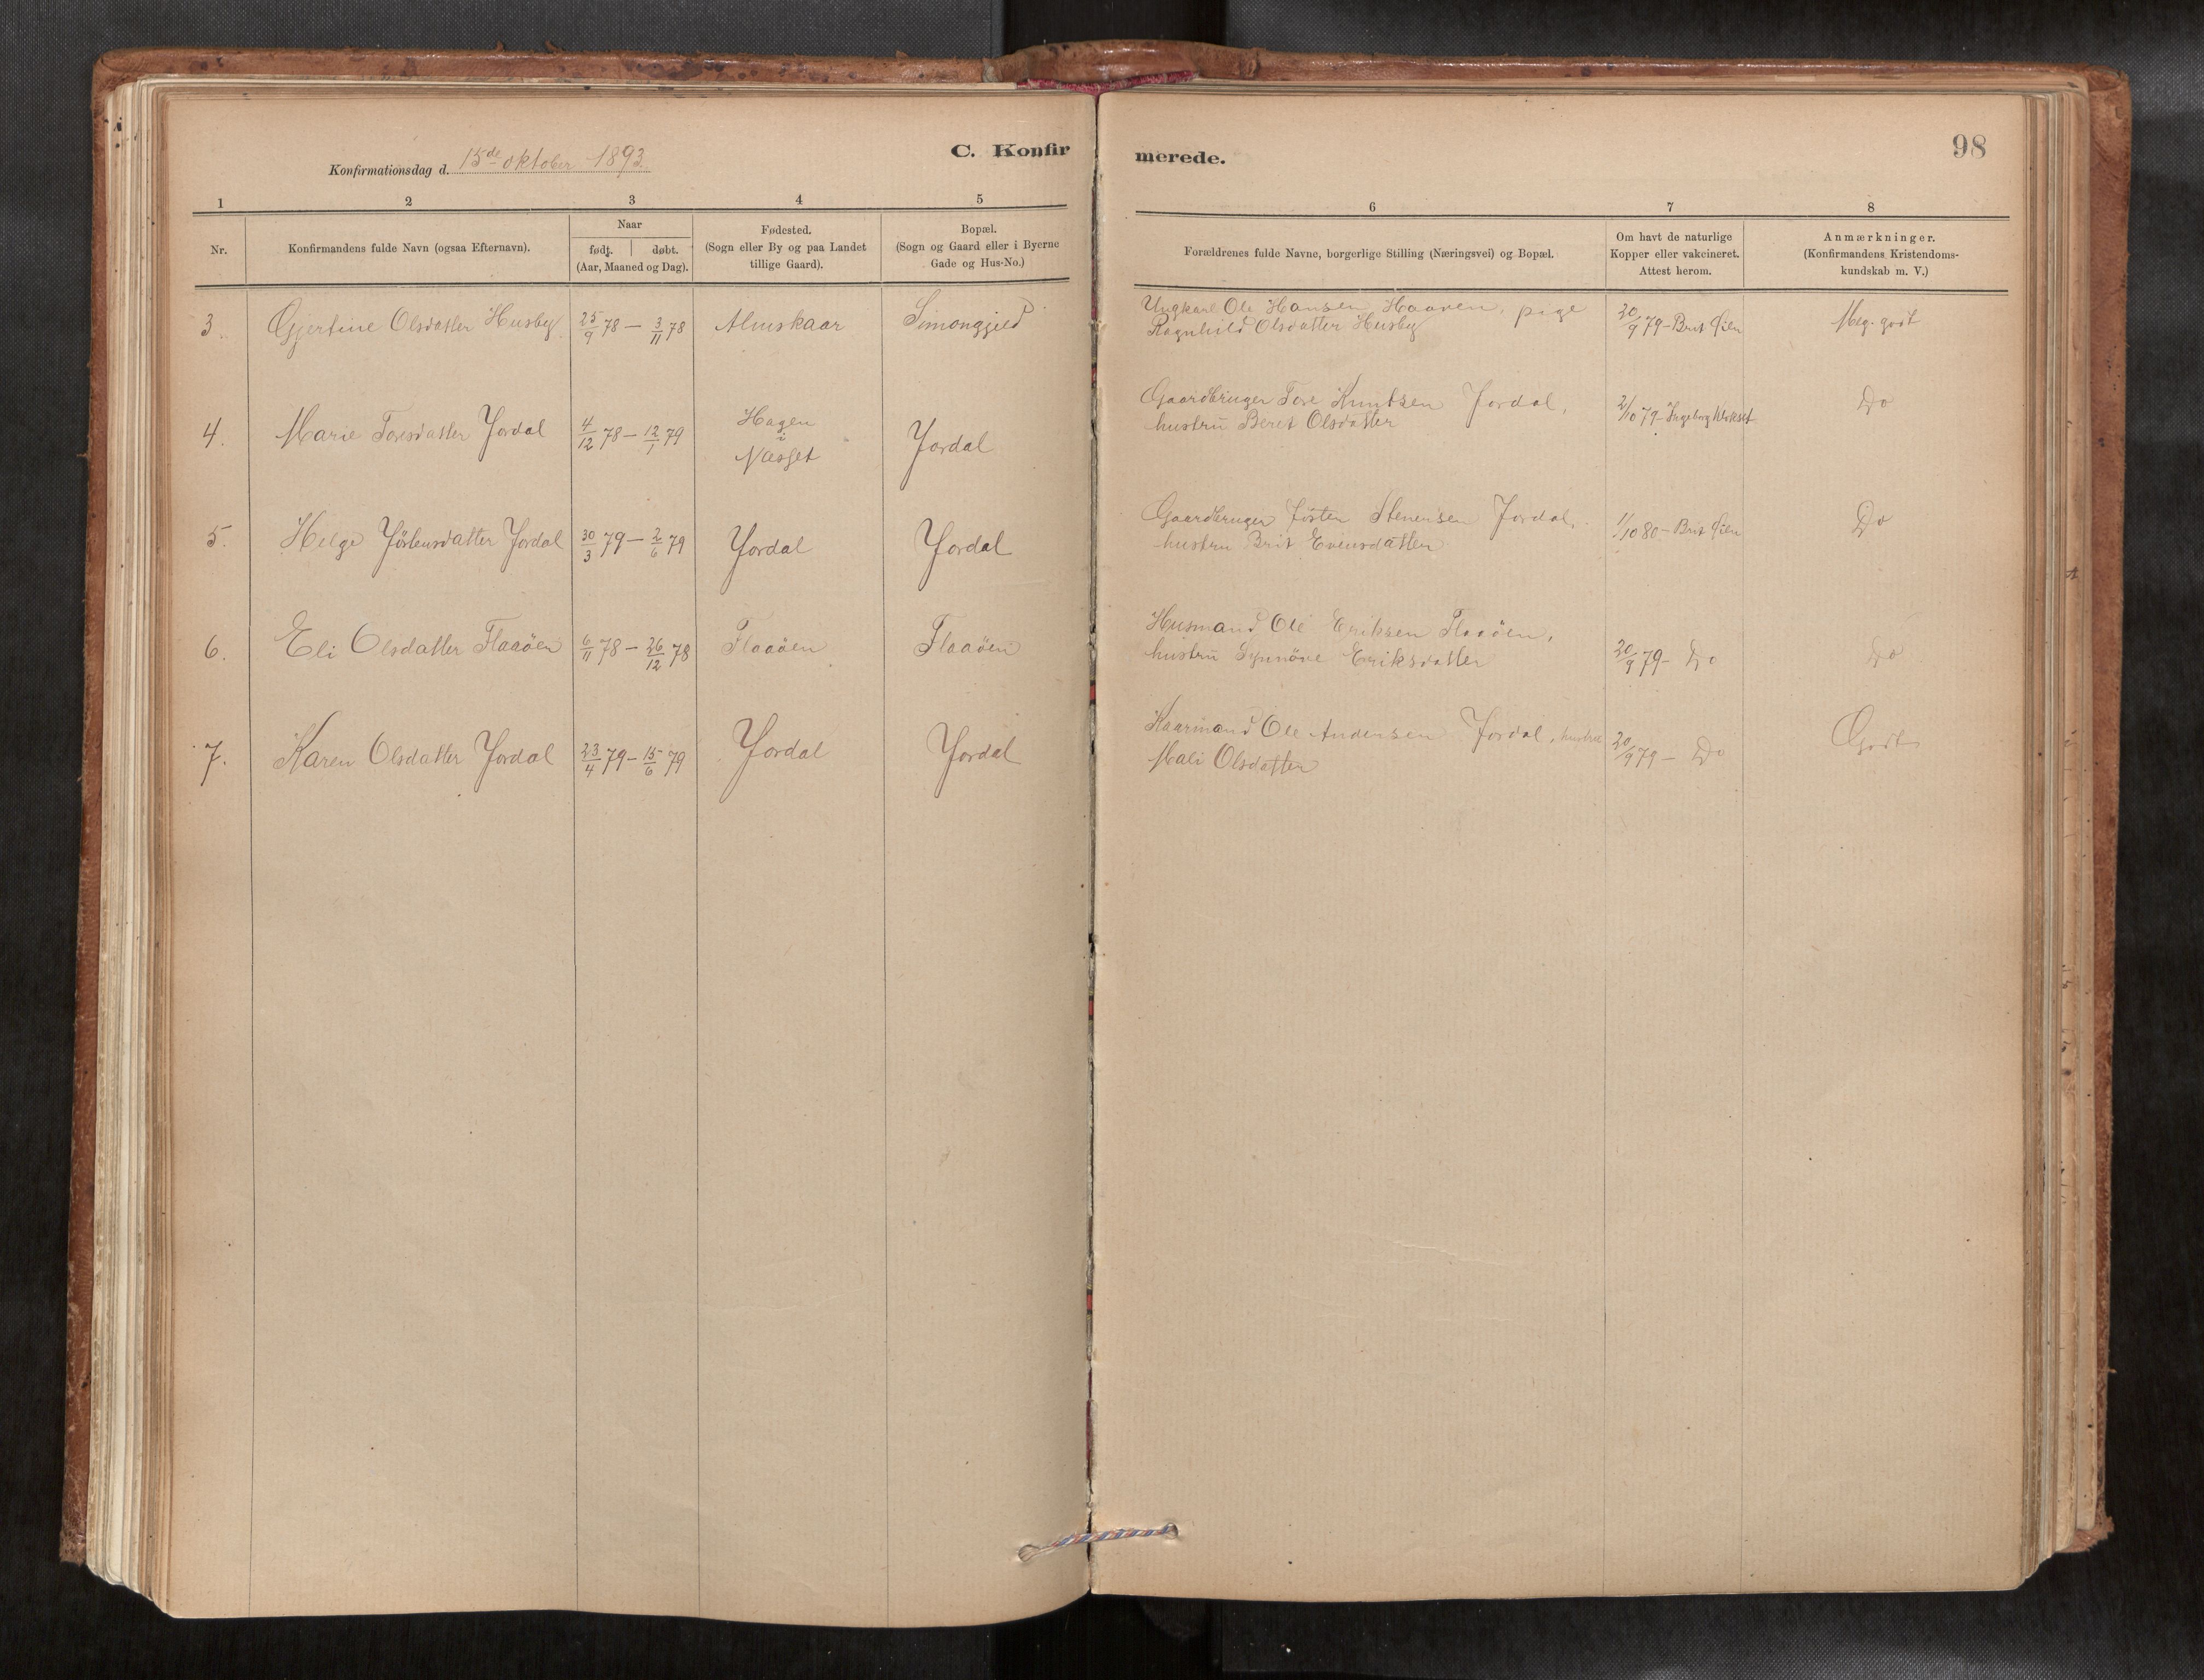 Konfirmationsdag d. 15de oktober 1893
C. Konfir
merede.
98
1 2 3 4 5
6 7 8
Nr.
Konfirmandens fulde Navn (ogsaa Efternavn).
Naar
født. | døbt.
(Aar, Maaned og Dag).
Fødested.
(Sogn eller By og paa Landet
tillige Gaard).
Bopæl.
(Sogn og Gaard eller i Byerne
Gade og Hus-No.)
Forældrenes fulde Navne, borgerlige Stilling (Næringsvei) og Bopæl.
Om havt de naturlige
Kopper eller vakcineret.
Attest herom.
Anmærkninger.
(Konfirmandens Kristendoms-
kundskab m. V.)
3. Gjertine Olsdatter Husby 25/9 78 — 3/11 78 Almskaar
Ungkarl Ole Hansen Haaven, pige
Ragnhild Olsdatter Husby
20/9 79 - Brit Øien
Meg. godt
4. Marie Toresdatter Jordal 4/12 78 — 12/1 79
Hagen
i
Næsset
Jordal
Gaardbruger Tore Knutsen Jordal,
hustru Beret Olsdatter
2/10 79 - Ingeborg
Do
5. Helge Jöstensdatter Jordal 30/3 79 — 2/6 79 Jordal Jordal
Gaardbruger Jösten Stenersen Jordal,
hustru Brit Evensdatter
1/10 80 - Brit Øien
Do
6. Eli Olsdatter Flaaöen 6/11 78 — 26/12 78 Flaaöen Flaaöen
Husmand Ole Eriksen Flaaöen,
hustru Synnöve Eriksdatter
20/9 79 - Do
Do
7. Karen Olsdatter Jordal 23/4 79 — 15/6 79 Jordal Jordal
Kaarmand Ole Andersen Jordal, hustru
Mali Olsdatter
20/9 79 — Do
Godt